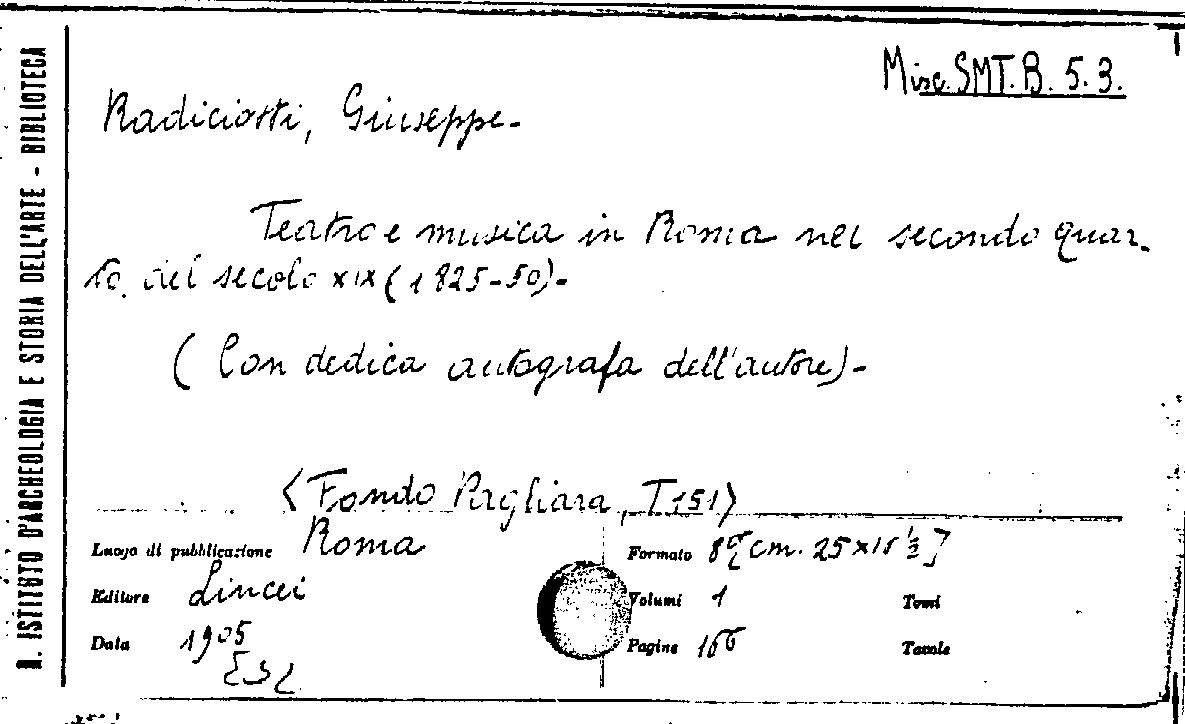 Misc. SMT. B. 5.3.
Radiciotti, Giuseppe-
Teatro e musica in Roma nel secondo quar-
to del secolo XIX (1825-50)-
(Con dedica autografa dell'autore)-
<Fondo Pagliara, T 151>
Luogo di pubblicazione Roma
Formato 8º [cm. 25x16 ½]
Editore Lincei
Volumi 1
Tomi
Data 1905
Pagine 166
Tavole
R. ISTITUTO D'ARCHEOLOGIA E STORIA DELL'ARTE - BIBLIOTECA